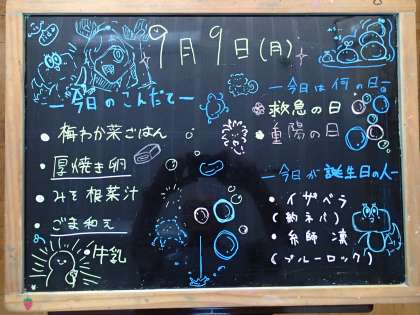 9月9日(月)
ー今日のこんだてー
・梅わか菜ごはん
・厚焼き卵
・みそ根菜汁
・ごま和え
・牛乳
ー今日は何の日ー
救急の日
・重陽の日
ー今日が誕生日の人ー
・イザベラ
(約ネバ)
・糸師 凛
(ブルーロック)